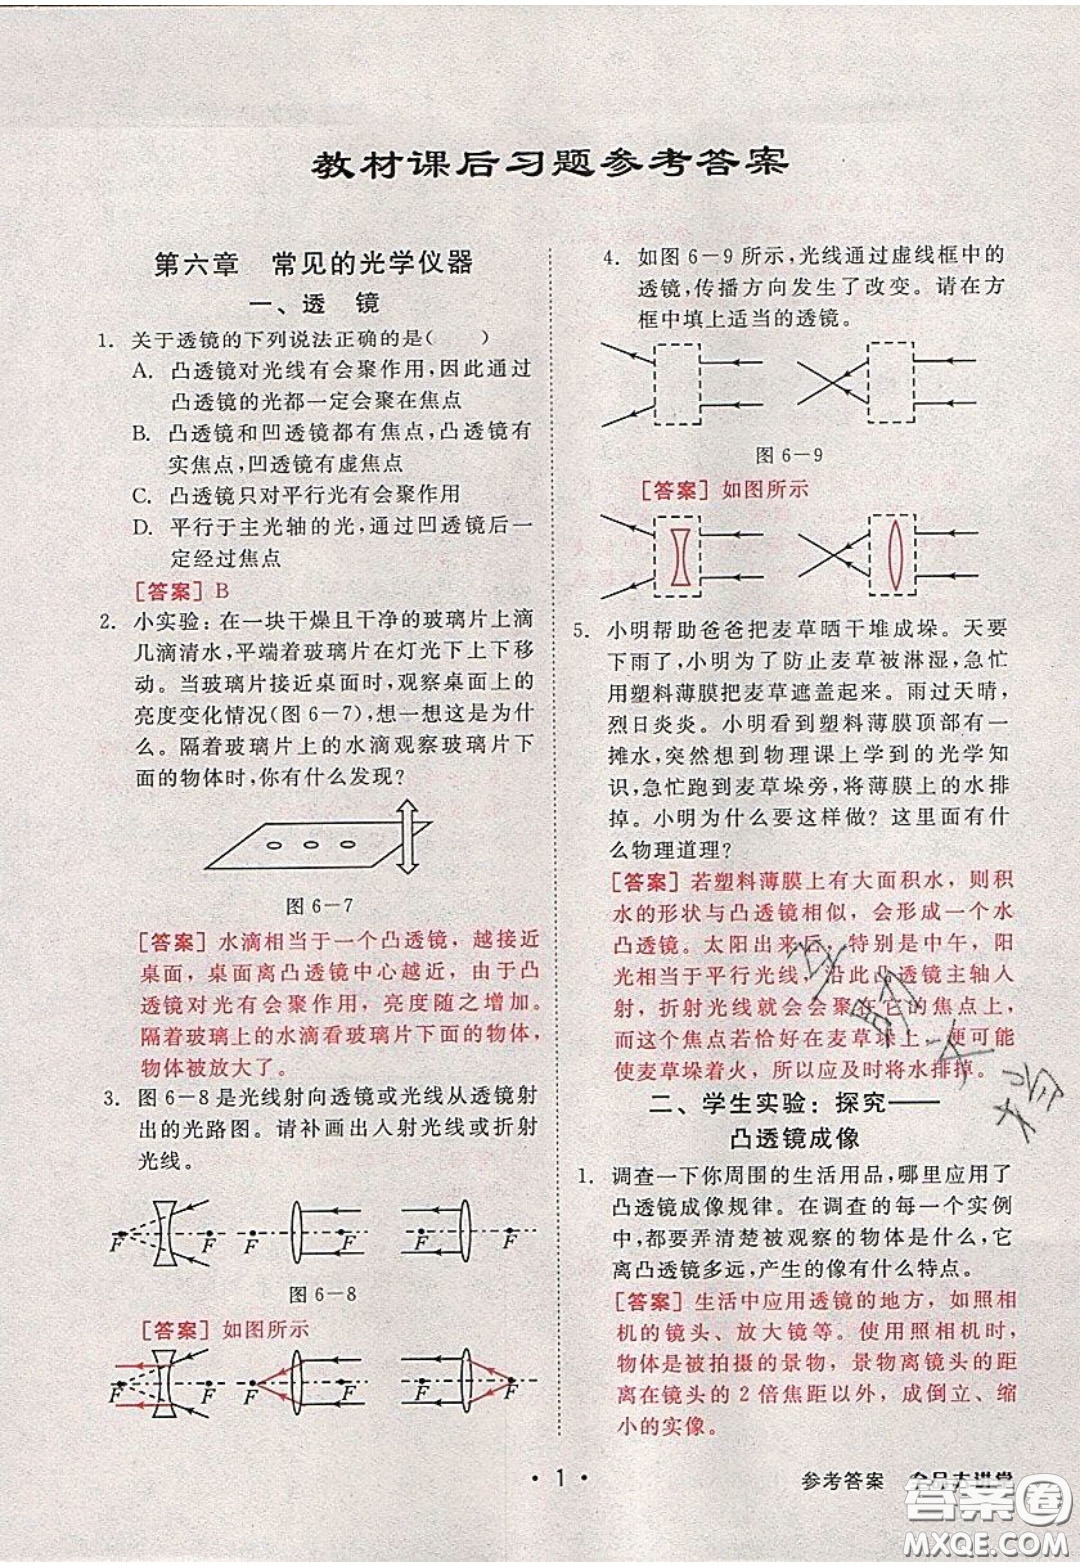 教材课后习题参考答案
第六章　常见的光学仪器
一、透　镜
1. 关于透镜的下列说法正确的是(　　)
A. 凸透镜对光线有会聚作用,因此通过
凸透镜的光都一定会聚在焦点
B. 凸透镜和凹透镜都有焦点,凸透镜有
实焦点,凹透镜有虚焦点
C. 凸透镜只对平行光有会聚作用
D. 平行于主光轴的光,通过凹透镜后一
定经过焦点
[答案] B
2. 小实验:在一块干燥且干净的玻璃片上滴
几滴清水,平端着玻璃片在灯光下上下移
动。当玻璃片接近桌面时,观察桌面上的
亮度变化情况(图6-7),想一想这是为什
么。隔着玻璃片上的水滴观察玻璃片下
面的物体时,你有什么发现?
图6-7
[答案] 水滴相当于一个凸透镜,越接近
桌面,桌面离凸透镜中心越近,由于凸
透镜对光有会聚作用,亮度随之增加。
隔着玻璃上的水滴看玻璃片下面的物体,
物体被放大了。
3. 图6-8是光线射向透镜或光线从透镜射
出的光路图。请补画出入射光线或折射
光线。
F F F F F F
图6-8
[答案] 如图所示
F F F F F F
4. 如图6-9所示,光线通过虚线框中的
透镜,传播方向发生了改变。请在方
框中填上适当的透镜。
图6-9
[答案] 如图所示
5. 小明帮助爸爸把麦草晒干堆成垛。天要
下雨了,小明为了防止麦草被淋湿,急忙
用塑料薄膜把麦草遮盖起来。雨过天晴,
烈日炎炎。小明看到塑料薄膜顶部有一
摊水,突然想到物理课上学到的光学知
识,急忙跑到麦草垛旁,将薄膜上的水排
掉。小明为什么要这样做?这里面有什
么物理道理?
[答案] 若塑料薄膜上有大面积水,则积
水的形状与凸透镜相似,会形成一个水
凸透镜。太阳出来后,特别是中午,阳
光相当于平行光线,沿此凸透镜主轴入
射,折射光线就会会聚在它的焦点上,
而这个焦点若恰好在麦草垛上,便可能
使麦草垛着火,所以应及时将水排掉。
二、学生实验:探究——
凸透镜成像
1. 调查一下你周围的生活用品,哪里应用了
凸透镜成像规律。在调查的每一个实例
中,都要弄清楚被观察的物体是什么,它
离凸透镜多远,产生的像有什么特点。
[答案] 生活中应用透镜的地方,如照相
机的镜头、放大镜等。使用照相机时,
物体是被拍摄的景物,景物离镜头的距
离在镜头的2倍焦距以外,成倒立、缩
小的实像。
• 1 •
参考答案
答案圈
MXQE.COM